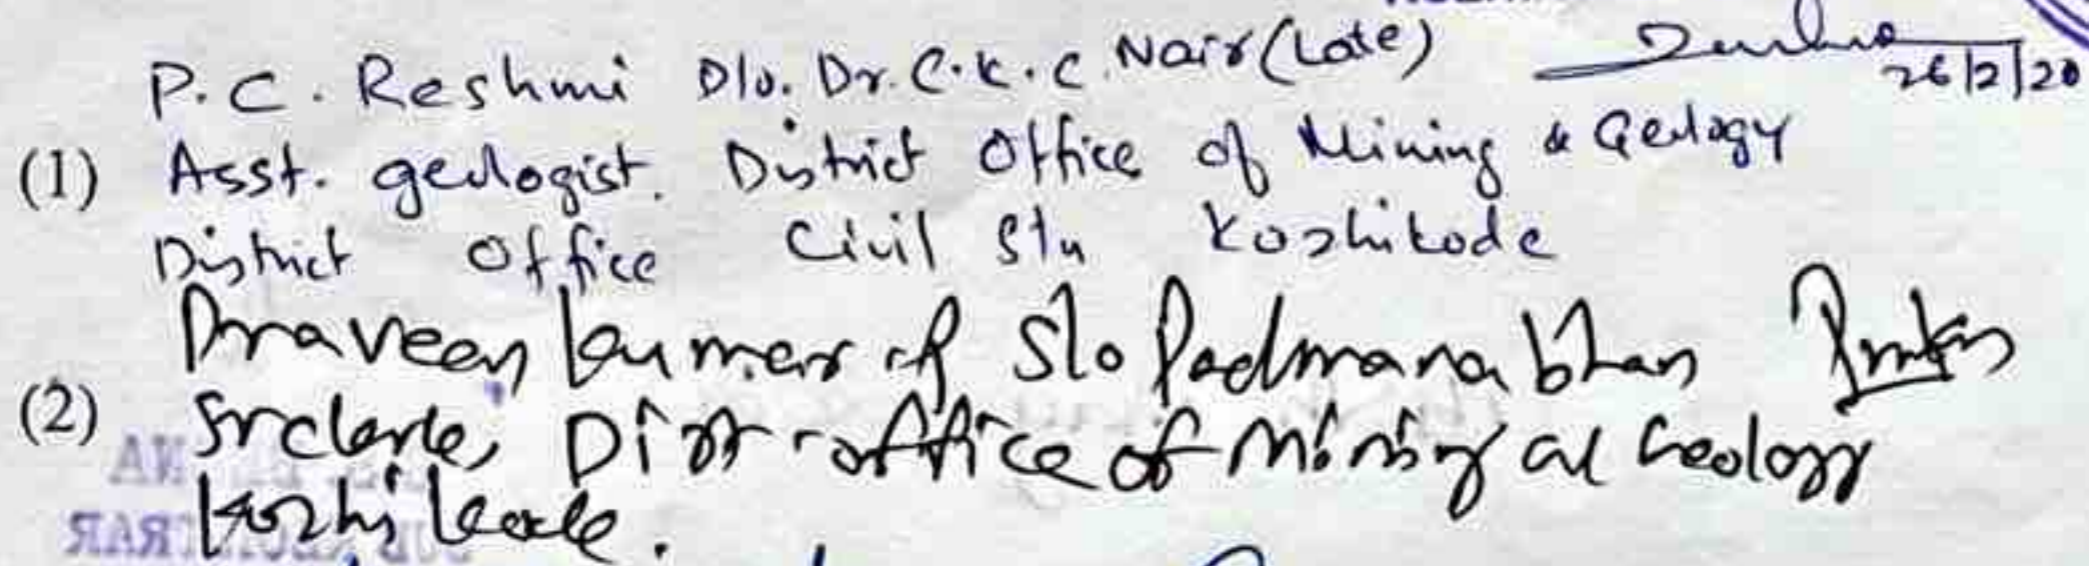 P.C. Reshmi D/o. Dr. C.K.C. Nair (Late)
26/2/20
(1) Asst. geologist. District Office of Mining & Geology
District Office Civil Stn Kozhikode
Praveen kumar P S/o Padmanabhan
(2) Sr clerk, Distt office of Mining and Geology
Kozhikode.